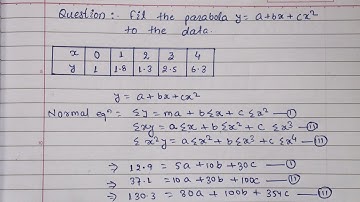 Question:- Fit the parabola y = a+bx+cx²
to the data.
x 0 1 2 3 4
y 1 1.8 1.3 2.5 6.3
y = a+bx+cx²
Normal eqⁿ = Σy = ma + bΣx + cΣx² — (I)
Σxy = aΣx + bΣx² + cΣx³ — (II)
Σx²y = aΣx² + bΣx³ + cΣx⁴ — (III)
⇒ 12.9 = 5a + 10b + 30c — (I)
⇒ 37.1 = 10a + 30b + 100c — (II)
⇒ 130.3 = 30a + 100b + 354c — (III)